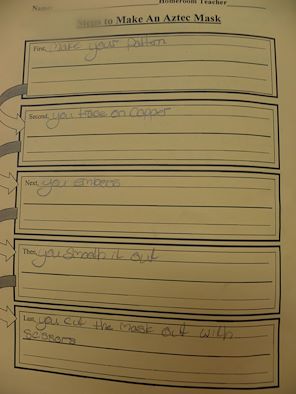 Name: Homeroom Teacher
Steps to Make An Aztec Mask
First, Make your Patton
Second, you trace on copper
Next, you enboss
Then, you Smooth it out
Last, you cut the mask out with
scissors